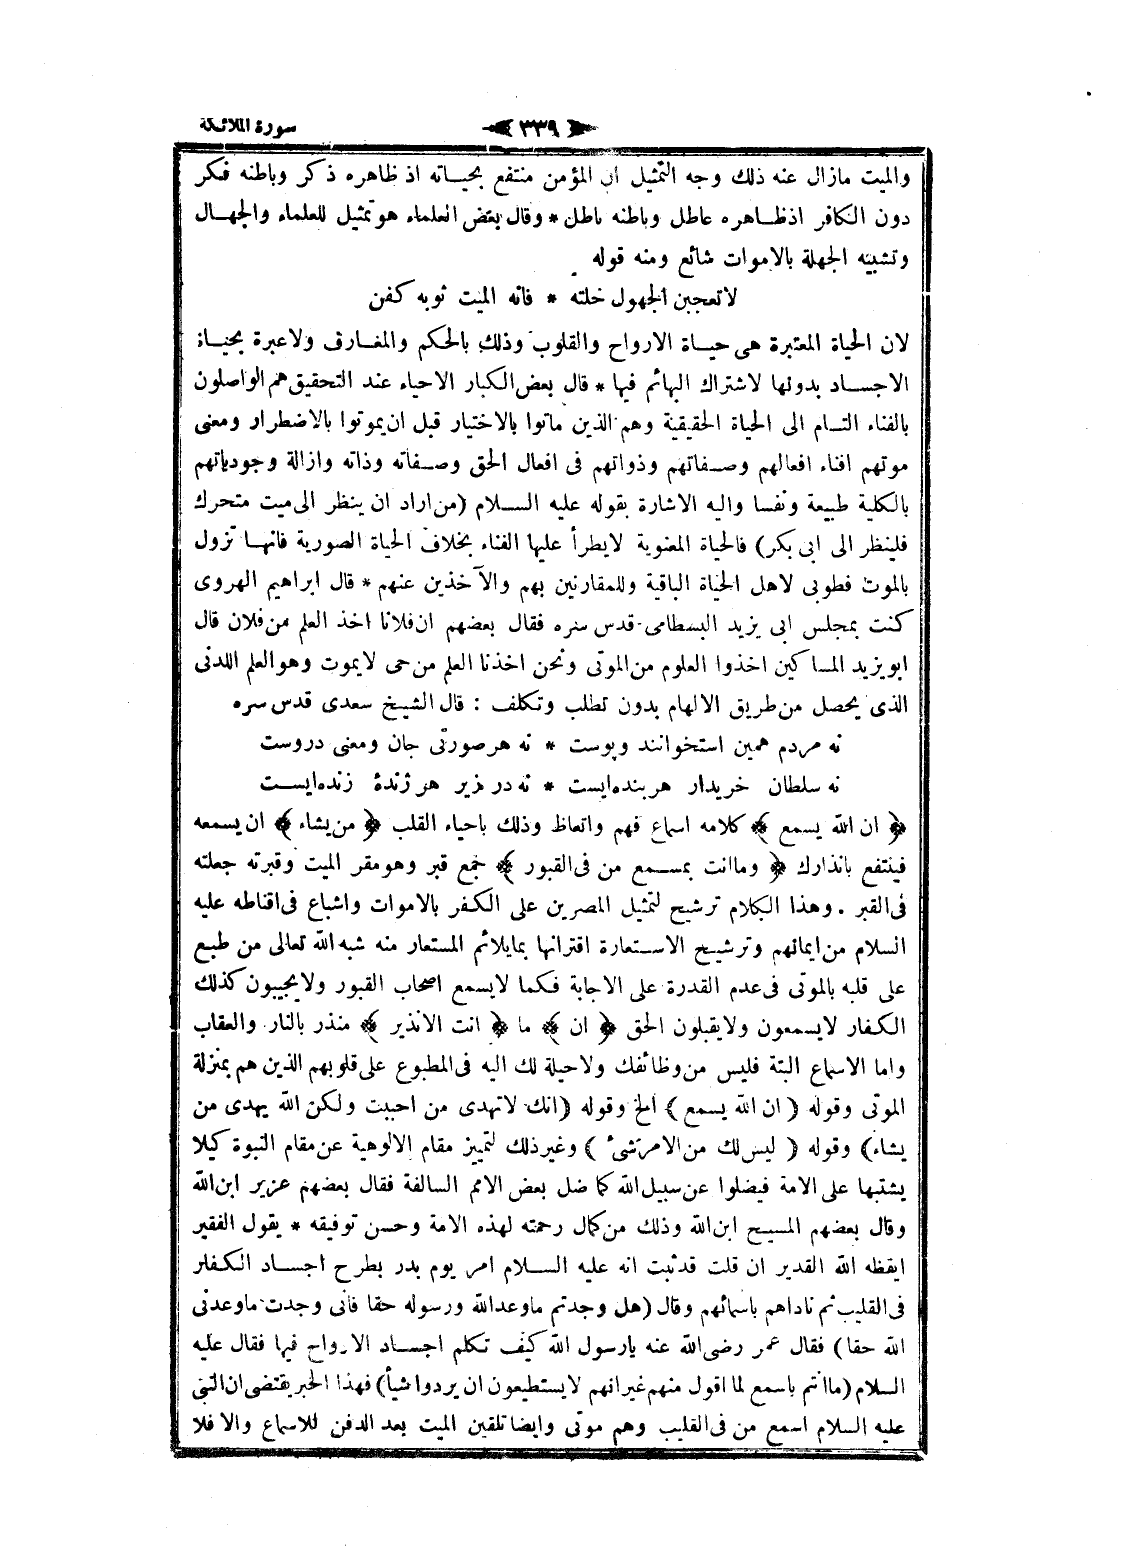 سورة الملائكة
٣٣٩
والميت مازال عنه ذلك وجه التمثيل ان المؤمن منتفع بحياته اذ ظاهره ذكر وباطنه فكر
دون الكافر اذظاهره عاطل وباطنه باطل * وقال بعض العلماء هو تمثيل للعلماء والجهال
وتشبيه الجهلة بالاموات شائع ومنه قوله
لاتعجبن الجهول خلته * فانه الميت ثوبه كفن
لان الحياة المعتبرة هى حياة الارواح والقلوب وذلك بالحكم والمعارف ولاعبرة بحياة
الاجساد بدونها لاشتراك البهائم فيها * قال بعض الكبار الاحياء عند التحقيق هم الواصلون
بالفناء التام الى الحياة الحقيقية وهم الذين ماتوا بالاختيار قبل ان يموتوا بالاضطرار ومعنى
موتهم افناء افعالهم وصفاتهم وذواتهم فى افعال الحق وصفاته وذاته وازالة وجودياتهم
بالكلية طبيعة ونفسا واليه الاشارة بقوله عليه السلام (من اراد ان ينظر الى ميت متحرك
فلينظر الى ابى بكر) فالحياة المعنوية لايطرأ عليها الفناء بخلاف الحياة الصورية فانها تزول
بالموت فطوبى لاهل الحياة الباقية وللمقارنين بهم والآخذين عنهم * قال ابراهيم الهروى
كنت بمجلس ابى يزيد البسطامى قدس سره فقال بعضهم ان فلانا اخذ العلم من فلان قال
ابويزيد المساكين اخذوا العلوم من الموتى ونحن اخذنا العلم من حى لايموت وهو العلم اللدنى
الذى يحصل من طريق الالهام بدون تطلب وتكلف : قال الشيخ سعدى قدس سره
نه مردم همين استخوانند وپوست * نه هرصورتى جان ومعنى دروست
نه سلطان خريدار هربنده‌ايست * نه در زير هر ژندۀ زنده‌ايست
﴿ ان الله يسمع ﴾ كلامه اسماع فهم واتعاظ وذلك باحياء القلب ﴿ من يشاء ﴾ ان يسمعه
فينتفع بانذارك ﴿ وما انت بمسمع من فى القبور ﴾ جمع قبر وهو مقر الميت وقبرته جعلته
فى القبر . وهذا الكلام ترشيح لتمثيل المصرين على الكفر بالاموات واشباع فى اقناطه عليه
السلام من ايمانهم وترشيح الاستعارة اقترانها بمايلائم المستعار منه شبه الله تعالى من طبع
على قلبه بالموتى فى عدم القدرة على الاجابة فكما لايسمع اصحاب القبور ولايجيبون كذلك
الكفار لايسمعون ولايقبلون الحق ﴿ ان ﴾ ما ﴿ انت الانذير ﴾ منذر بالنار والعقاب
واما الاسماع البتة فليس من وظائفك ولاحيلة لك اليه فى المطبوع على قلوبهم الذين هم بمنزلة
الموتى وقوله ( ان الله يسمع ) الخ وقوله (انك لاتهدى من احببت ولكن الله يهدى من
يشاء) وقوله ( ليس لك من الامر شئ ) وغير ذلك لتمييز مقام الالوهية عن مقام النبوة كيلا
يشتبها على الامة فيضلوا عن سبيل الله كما ضل بعض الامم السالفة فقال بعضهم عزير ابن الله
وقال بعضهم المسيح ابن الله وذلك من كمال رحمته لهذه الامة وحسن توفيقه * يقول الفقير
ايقظه الله القدير ان قلت قد ثبت انه عليه السلام امر يوم بدر بطرح اجساد الكفار
فى القليب ثم ناداهم باسمائهم وقال (هل وجدتم ماوعد الله ورسوله حقا فانى وجدت ماوعدنى
الله حقا) فقال عمر رضى الله عنه يارسول الله كيف تكلم اجساد الارواح فيها فقال عليه
السلام (ما انتم باسمع لما اقول منهم غير انهم لايستطيعون ان يردوا شيأ) فهذا الخبر يقتضى ان النبى
عليه السلام اسمع من فى القليب وهم موتى وايضا تلقين الميت بعد الدفن للاسماع والا فلا